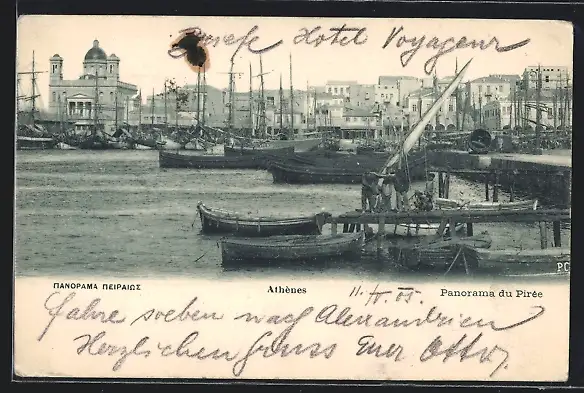 Benefe Hotel Voyageur
ΠΑΝΟΡΑΜΑ ΠΕΙΡΑΙΩΣ
Athènes
11. IV. 05.
Panorama du Pirée
PC
fahre soeben nach Alexandrien
Herzlichen Gruss Euer Otto